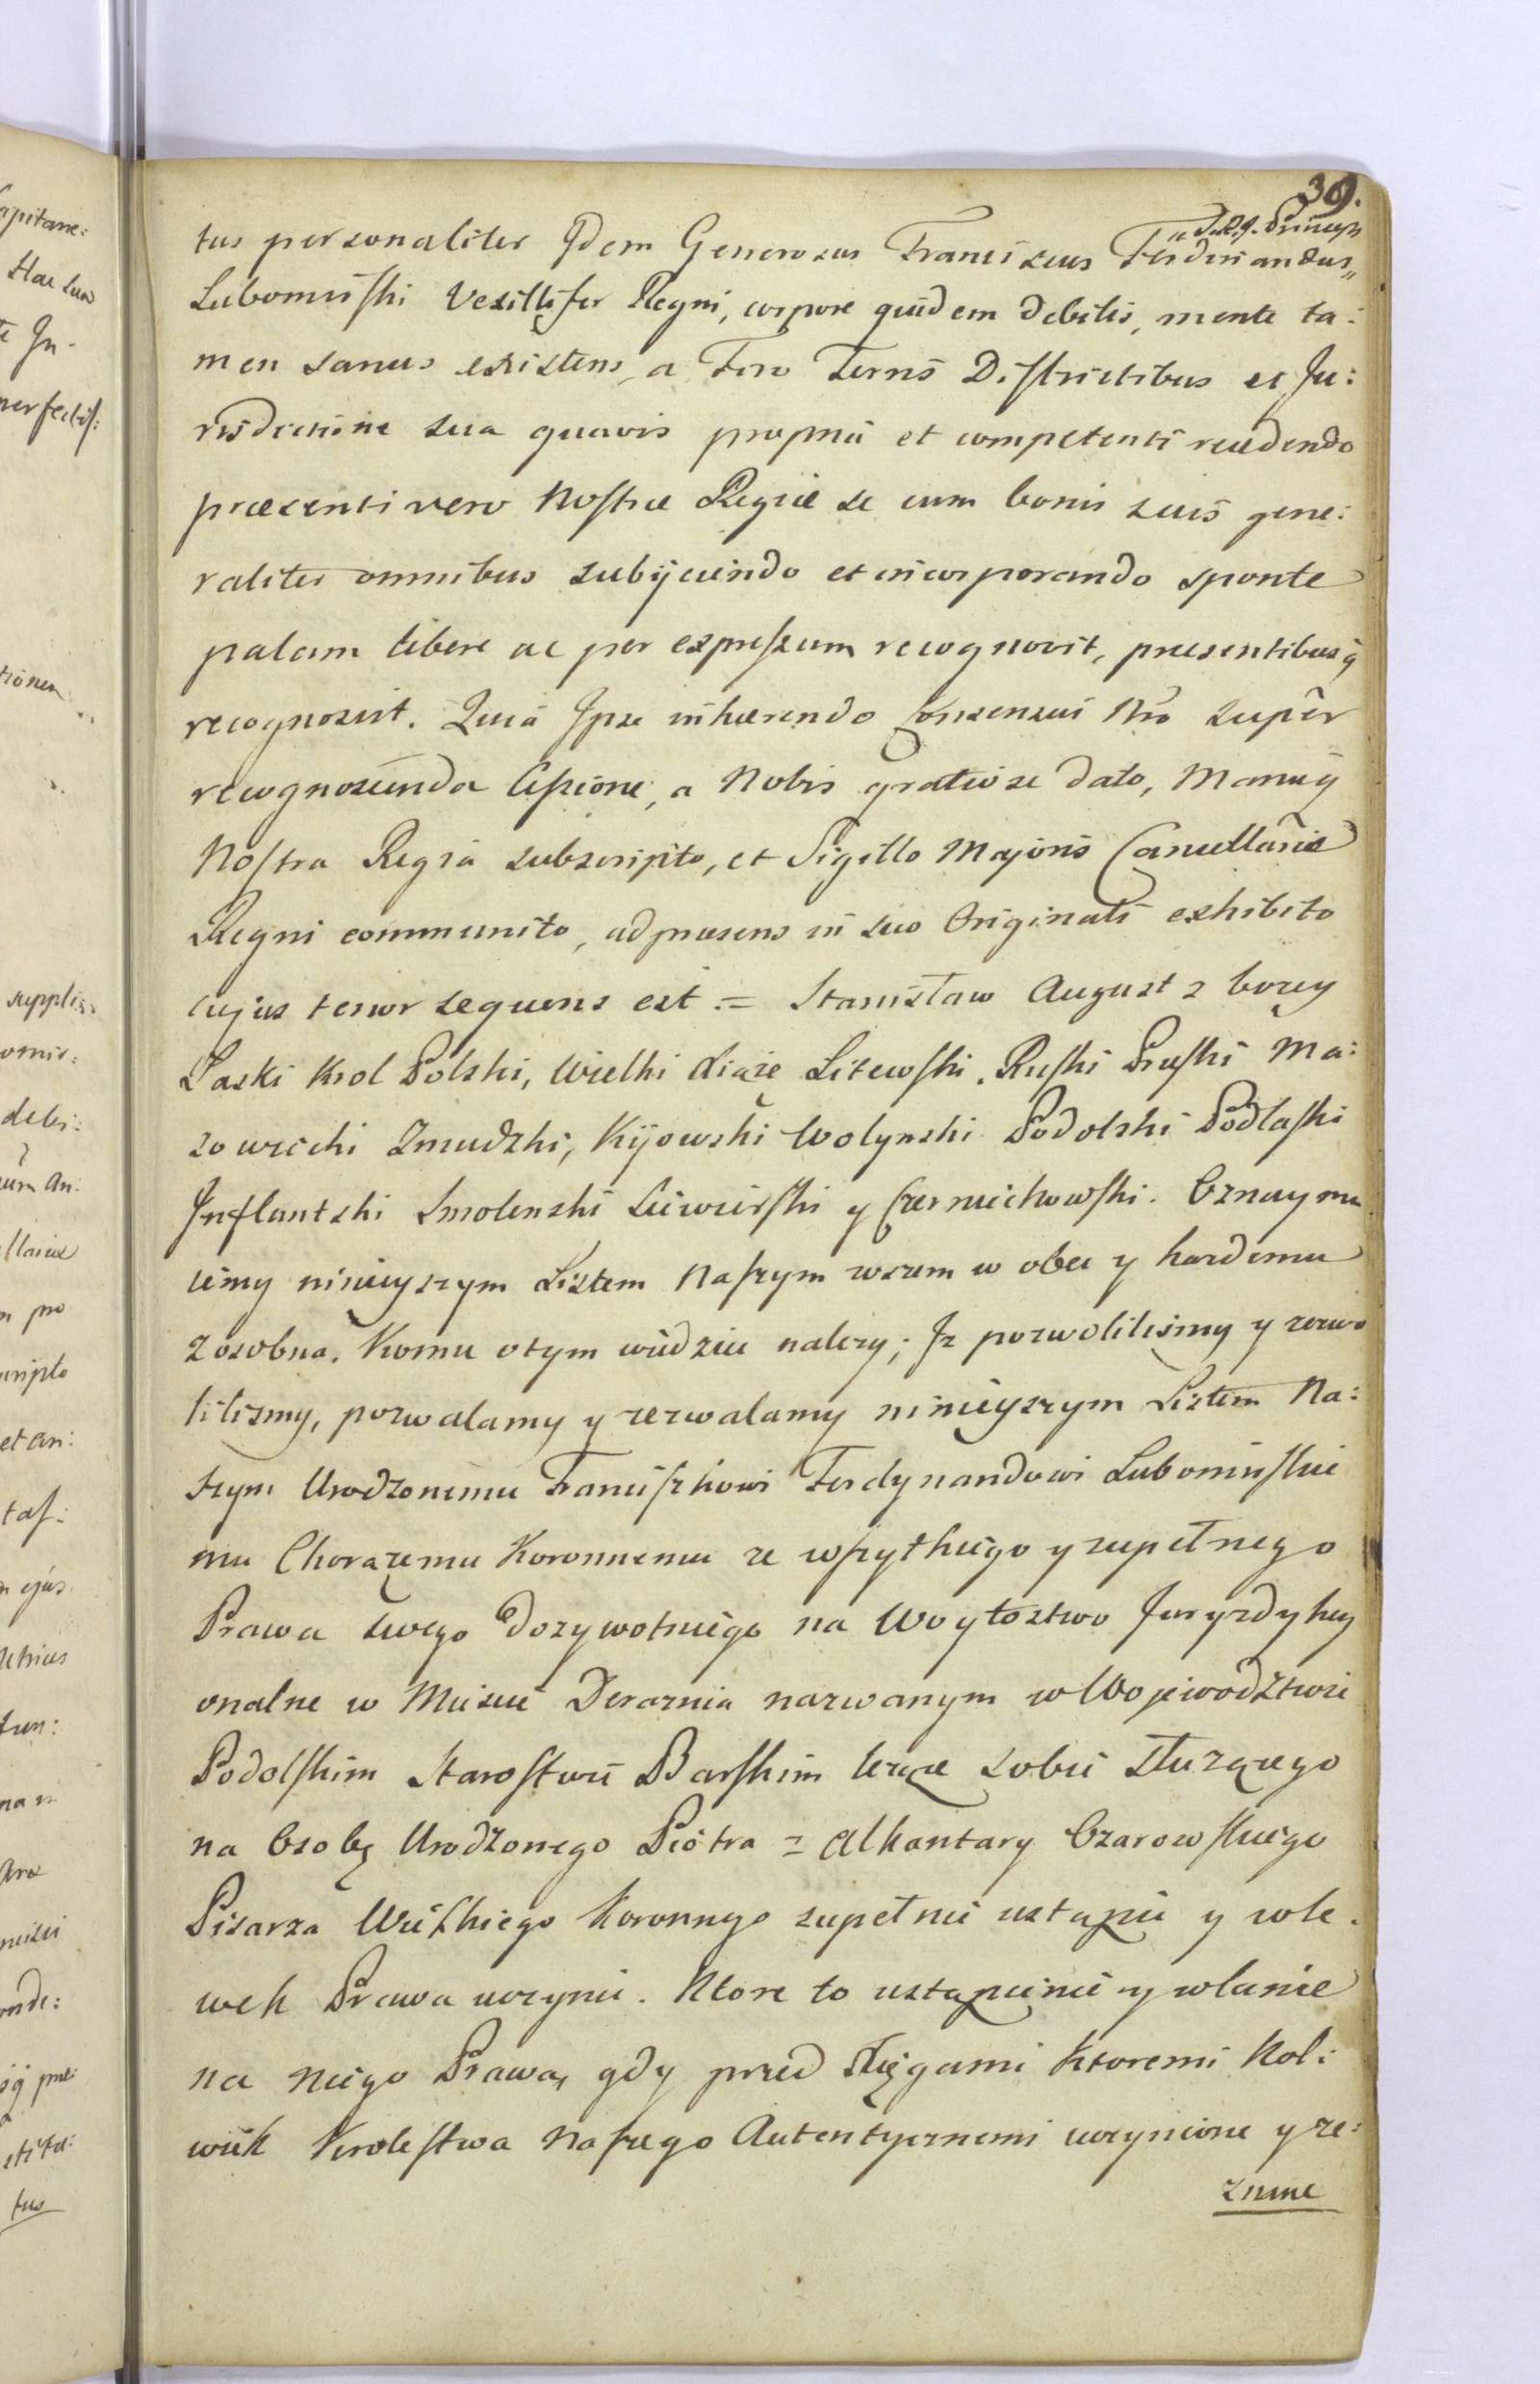 39.
„S.R.I. Princeps
tus personaliter Idem Generosus Franciscus Ferdinandus„
Lubomirski Vexillifer Regni, corpore quidem debilis, mente ta:
men sanus existens, a Foro Terris Districtibus et Ju:
risdictione sua quavis propria et competenti recedendo
præsenti vero Nostræ Regiæ se cum bonis suis gene:
raliter omnibus subijciendo et incorporando sponte
palam libere ac per expressum recognovit, præsentibusq̃
recognoscit. Quia Ipse inhærendo Consensui Nrõ super
recognoscenda Cessione, a Nobis gratiose dato, Manuq̃
Nostra Regia subscripto, et Sigillo Majoris Cancellariæ
Regni communito, ad præsens in suo Originali exhibito
cujus tenor sequens est = Stanisław August z bożey
Łaski Krol Polski, Wielki Xiąże Litewski, Ruski Pruski Ma:
zowiecki Zmudzki, Kijowski Wolynski Podolski Podlaski
Inflantski Smolenski Siewierski y Czerniechowski. Oznaymu
iemy ninieyszym Listem Naszym wszem w obec y każdemu
z osobna. Komu otym wiedziec nalezy; Iz pozwolilismy y zezwo
lilismy, pozwalamy y zezwalamy ninieyszym Listem Na:
szym Urodzonemu Franciszkowi Ferdynandowi Lubomirskie
mu Chorązemu Koronnemu ze wszytkiego y zupełnego
Prawa swego Dozywotniego na Woytostwo Juryzdykcy
onalne w Miescie Deraznia nazwanym w Wojewodztwie
Podolskim Starostwie Barskim leżące sobie służącego
na Osobę Urodzonego Piotra = Alkantary Ożarowskiego
Pisarza Wielkiego Koronnego zupełnie ustąpic y wle:
wek Prawa uczynic. Ktore to ustąpienie y wlanie
na niego Prawa, gdy przed Xięgami Ktoremi Kol:
wiek Krolestwa Naszego Autentycznemi uczynione y ze:
znane